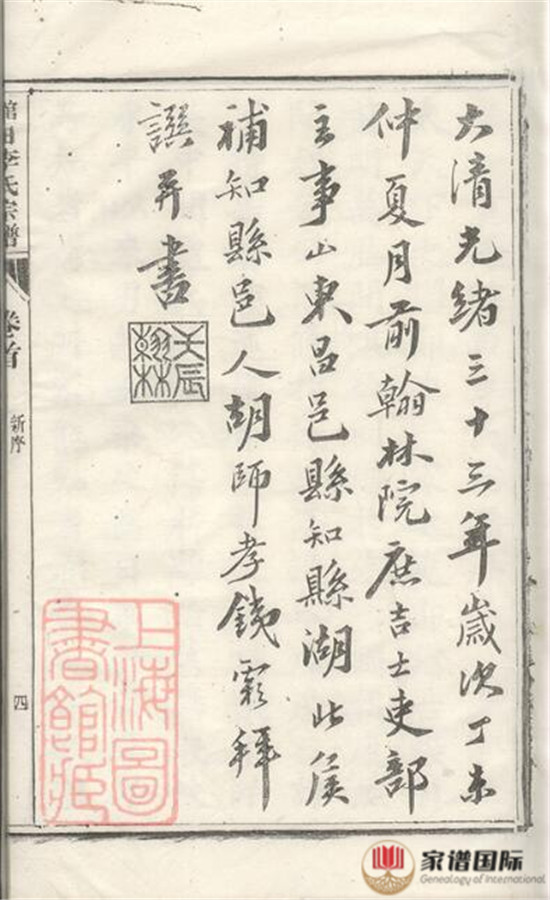 大清光緒三十三年歲次丁未
仲夏月前翰林院庶吉士吏部
主事山東昌邑縣知縣湖北矦
補知縣邑人胡師孝拜
譔并書
壬辰翰林
上海圖書館藏
田李氏宗譜
卷之首
新序
四
家谱国际
Genealogy of International